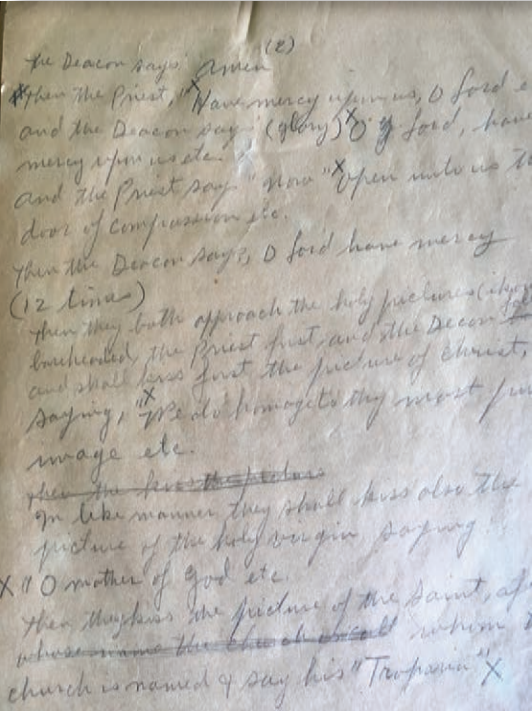 (2)
the Deacon says: Amen
Then the Priest, "Have mercy upon us, O Lord
and the Deacon say: (glory) O Lord, have
mercy upon us etc. X
and the Priest say "Now "Open unto us the
door of compassion etc.
Then the Deacon say, O Lord have mercy
(12 times)
Then they both approach the holy pictures
bareheaded, the Priest first, and the Deacon
and shall kiss first the picture of Christ,
saying, "We do homage to thy most pur
image etc.
then the kiss the picture
In like manner they shall kiss also the
picture of the holy virgin saying
X "O mother of God etc.
Then they kiss the picture of the saint, af
whose name the church is whom
church is named & say his "Troparia" X